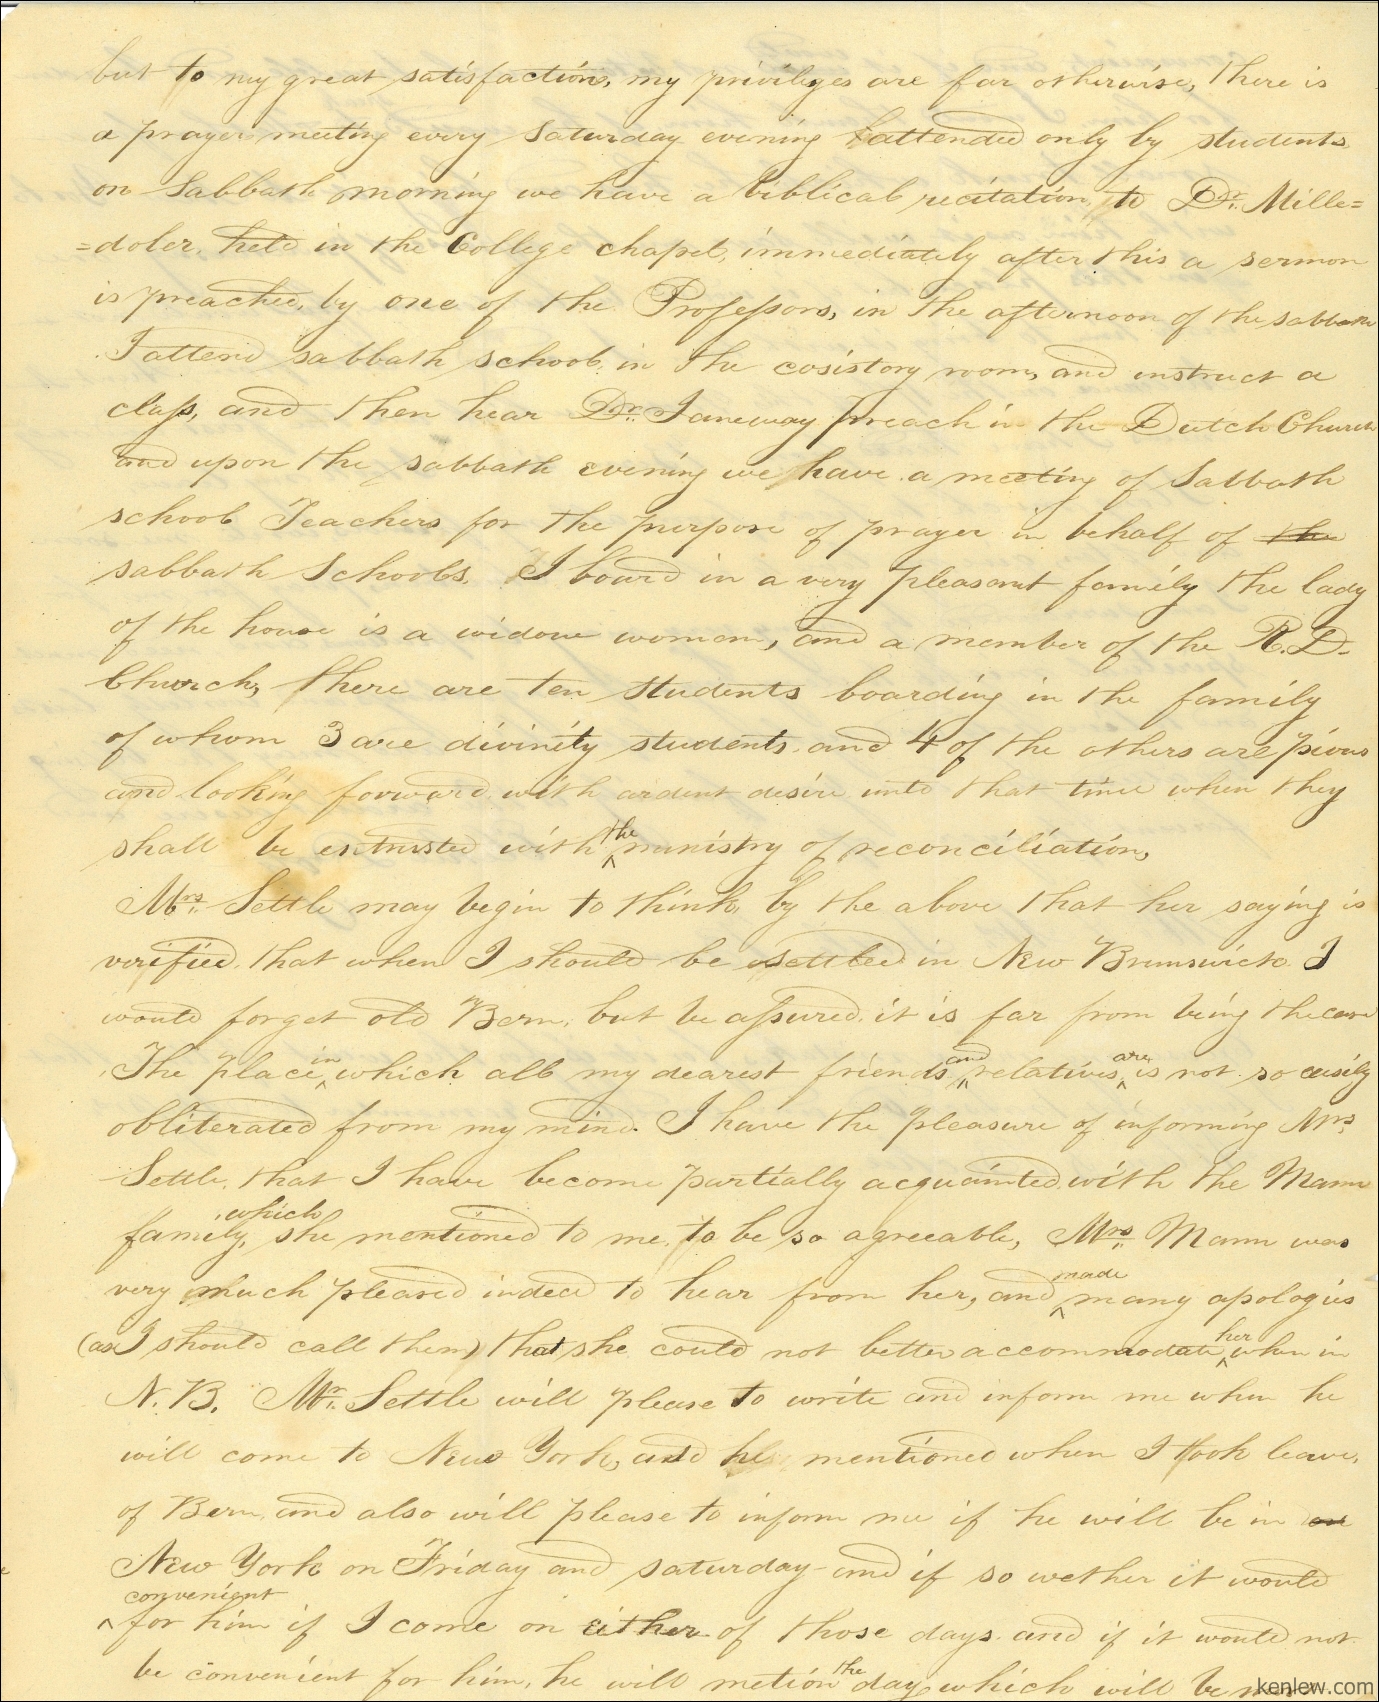 but to my great satisfaction, my privileges are far otherwise, there is
a prayer meeting every Saturday evening attended only by students
on Sabbath morning we have a biblical recitation to Dr. Mille=
=doler, held in the College chapel, immediately after this a sermon
is preached, by one of the Professors, in the afternoon of the sabbath
I attend sabbath school in the cosistory room, and instruct a
class, and then hear Dr. Janeway preach in the Dutch Church
and upon the sabbath evening we have a meeting of Sabbath
school Teachers for the purpose of prayer in behalf of the
sabbath Schools. I board in a very pleasant family the lady
of the house is a widow woman, and a member of the R.D.
Church, there are ten students boarding in the family
of whom 3 are divinity students and 4 of the others are pious
and looking forward with ardent desire unto that time when they
shall be entrusted with the ministry of reconciliation,
Mrs. Settle may begin to think, by the above that her saying is
verified, that when I should be settled in New Brunswick I
would forget old Bern, but be assured, it is far from being the case
The place in which all my dearest friends and relatives are is not so easily
obliterated from my mind. I have the pleasure of informing Mrs.
Settle, that I have become partially acquainted with the Mann
family, which she mentioned to me, to be so agreeable, Mrs. Mann was
very much pleased indeed to hear from her, and made many apologies
(as I should call them) that she could not better accommodate her when in
N.B. Mr. Settle will please to write and inform me when he
will come to New York, and he mentioned when I took leave,
of Bern, and also will please to inform me if he will be in on
New York on Friday and saturday and if so wether it would
convenient
for him if I come on either of those days and if it would not
be convenient for him, he will metion the day which will be
kenlew.com